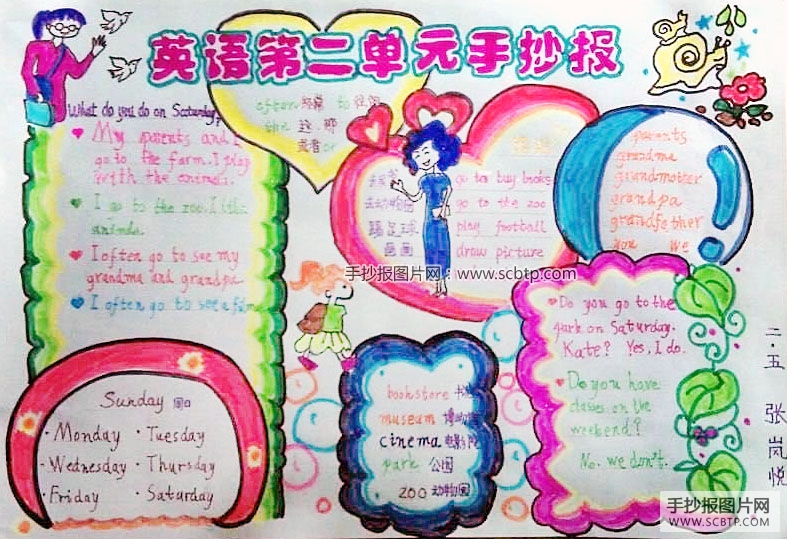 英语第二单元手抄报
What do you do on Saturday?
My parents and I
go to the farm. I play
with the animals.
I go to the zoo. I like
animals.
I often go to see my
grandma and grandpa.
I often go to see a film
often 经常 to 往,向
the 这,那
或者 or
go to buy books
去动物园 go to the zoo
踢足球 play football
画画 draw picture
parents
grandma
grandmother
grandpa
grandfather
you we
手抄报图片网:www.scbtp.com
Do you go to the
park on Saturday,
Kate? Yes, I do.
Do you have
classes on the
weekend?
No, we don't.
Sunday 周日
Monday · Tuesday
Wednesday · Thursday
Friday · Saturday
bookstore 书店
museum 博物馆
cinema 电影院
park 公园
zoo 动物园
二·五 张岚悦
手抄报图片网
WWW.SCBTP.COM